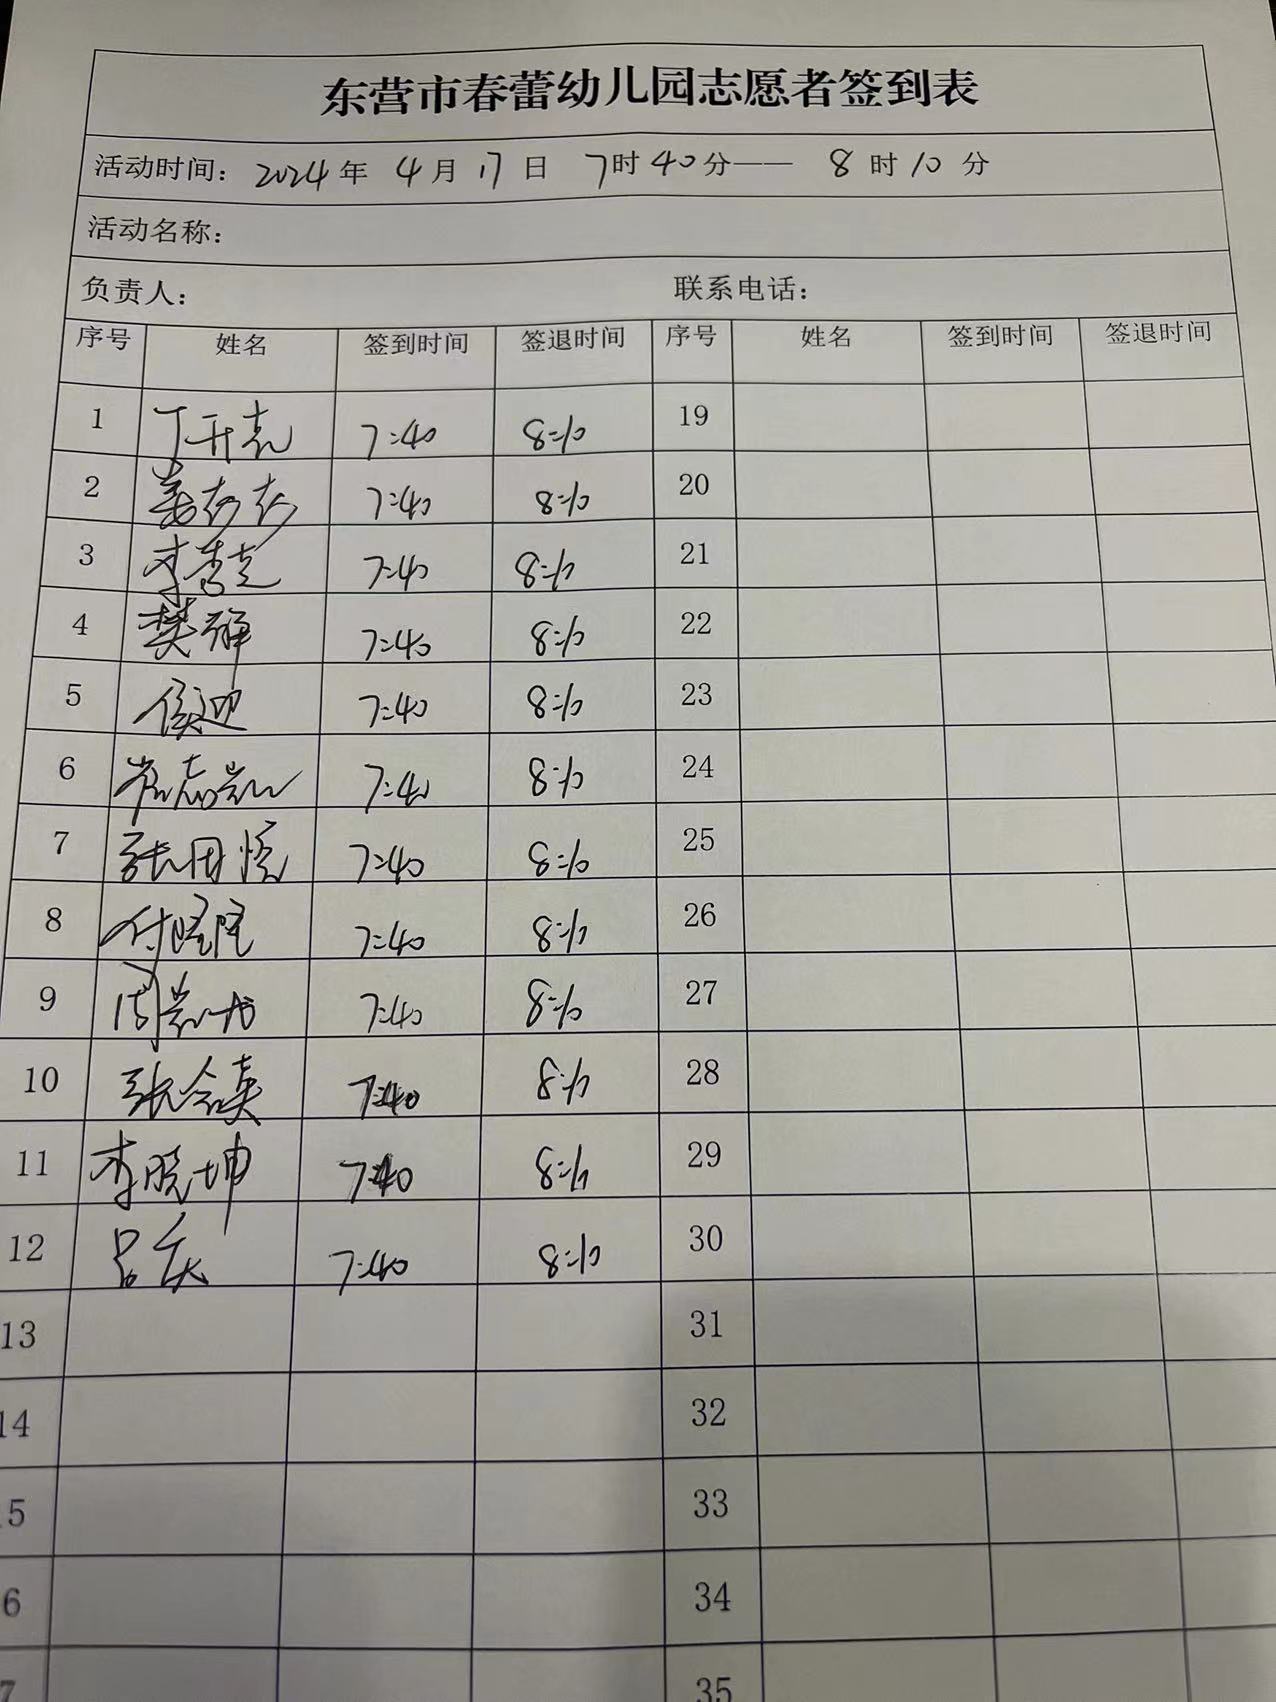 东营市春蕾幼儿园志愿者签到表
活动时间：2024年 4月17日 7时40分—— 8时10分
活动名称：
负责人： 联系电话：
序号 姓名 签到时间 签退时间 序号 姓名 签到时间 签退时间
1 7:40 8:10 19
2 姜莎莎 7:40 8:10 20
3 李 7:40 8:10 21
4 樊静 7:40 8:10 22
5 侯迎 7:40 8:10 23
6 7:40 8:10 24
7 张 7:40 8:10 25
8 付 7:40 8:10 26
9 周 7:40 8:10 27
10 张会英 7:40 8:10 28
11 李晓坤 7:40 8:10 29
12 吕庆 7:40 8:10 30
13 31
14 32
15 33
16 34
17 35